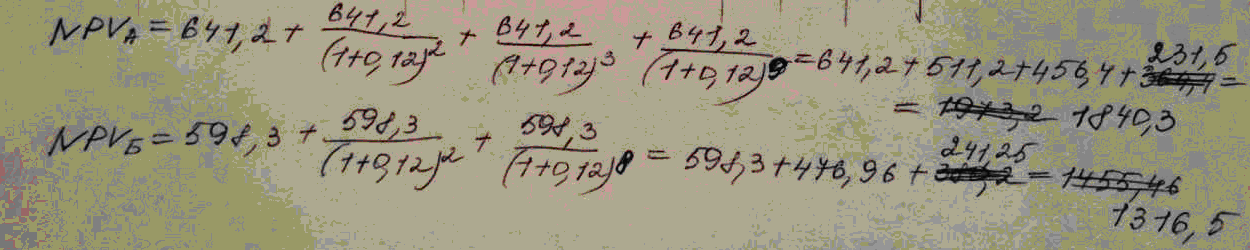 NPV_А = 641,2 + 641,2/(1+0,12)^2 + 641,2/(1+0,12)^3 + 641,2/(1+0,12)^9 = 641,2 + 511,2 + 456,4 + 231,5 =
= 1840,3
NPV_Б = 598,3 + 598,3/(1+0,12)^2 + 598,3/(1+0,12)^8 = 598,3 + 476,96 + 241,25 = 1455,46
1316,5